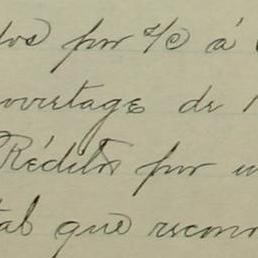 dos por s/c á
corretage de
Réditos por u
tal que recon